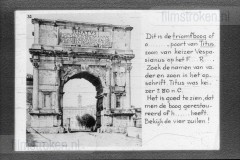 filmstroken.nl
Dit is de triomfboog of
o ..... poort van Titus
zoon van keizer Vespa-
sianus op het F... R...
Zoek de namen van va-
der en zoon in het op-
schrift. Titus was kei-
zer ± 80 n C.
Het is goed te zien, dat
men de boog gerestau-
reerd of h ..... heeft.
Bekijk de vier zuilen!